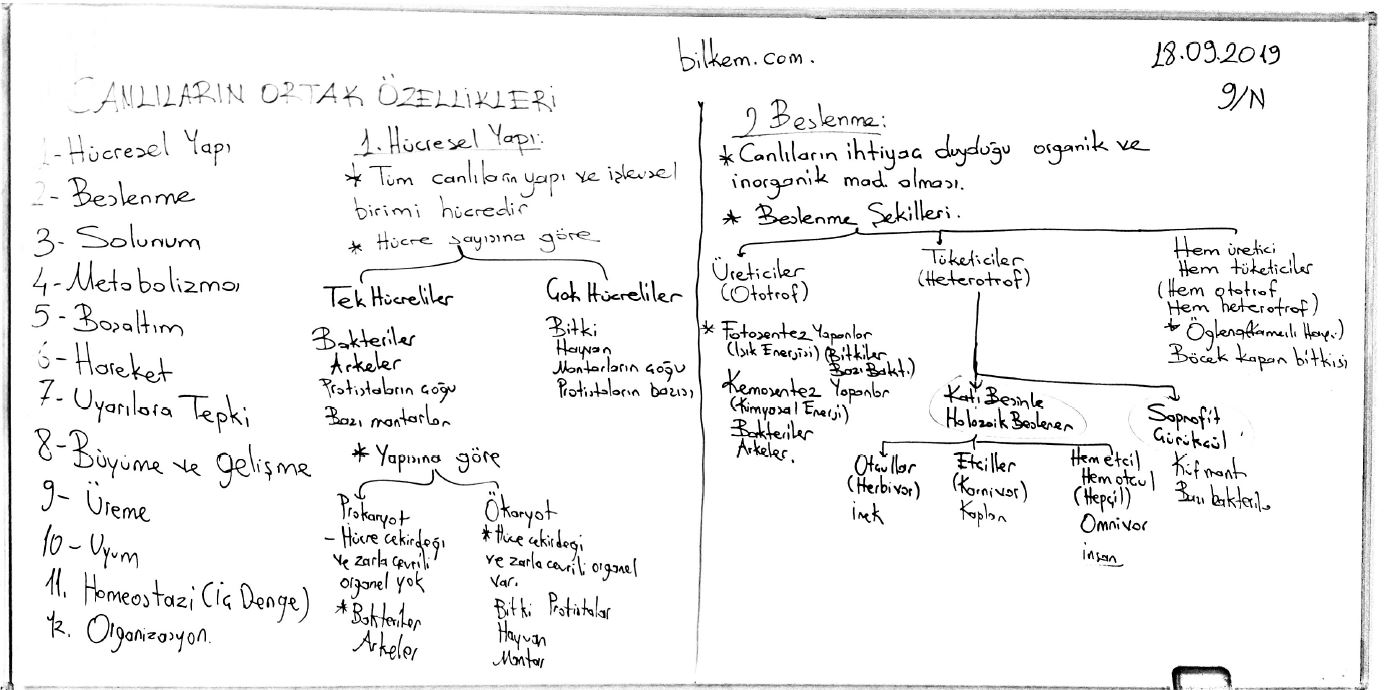 bilkem.com.
18.09.2019
9/N
CANLILARIN ORTAK ÖZELLİKLERİ
1- Hücresel Yapı
2- Beslenme
3- Solunum
4- Metabolizma
5- Boşaltım
6- Hareket
7- Uyarılara Tepki
8- Büyüme ve gelişme
9- Üreme
10- Uyum
11. Homeostazi (iç Denge)
12. Organizasyon.
1. Hücresel Yapı:
* Tüm canlıların yapı ve işlevsel
birimi hücredir
* Hücre sayısına göre
Tek Hücreliler
Bakteriler
Arkeler
Protistaların çoğu
Bazı mantarlar
Çok Hücreliler
Bitki
Hayvan
Mantarların çoğu
Protistaların bazısı
* Yapısına göre
Prokaryot
- Hücre çekirdeği
ve zarla çevrili
organel yok
* Bakteriler
Arkeler
Ökaryot
* Hüce çekirdegi
ve zarla çevrili organel
var.
Bitki Protistalar
Hayvan
Mantar
2 Beslenme:
* Canlıların ihtiyaç duyduğu organik ve
inorganik mad. alması.
* Beslenme Şekilleri.
Üreticiler
(Ototrof)
* Fotosentez Yapanlar
(Işık Enerjisi) (Bitkiler
Bazı Bakt.)
Kemosentez Yapanlar
(Kimyasal Enerji)
Bakteriler
Arkeler.
Tüketiciler
(Heterotrof)
Katı Besinle
Holozoik Beslenen
Otçullar
(Herbivor)
inek
Etçiller
(Karnivor)
Kaplan
Hem etçil
Hem otçul
(Hepçil)
Omnivor
insan
Saprofit
Çürükçül
Küf mant
Bazı bakteril.
Hem üretici
Hem tüketiciler
(Hem ototrof
Hem heterotrof)
* Öglena(Kamçılı Hayv.)
Böcek kapan bitkisi